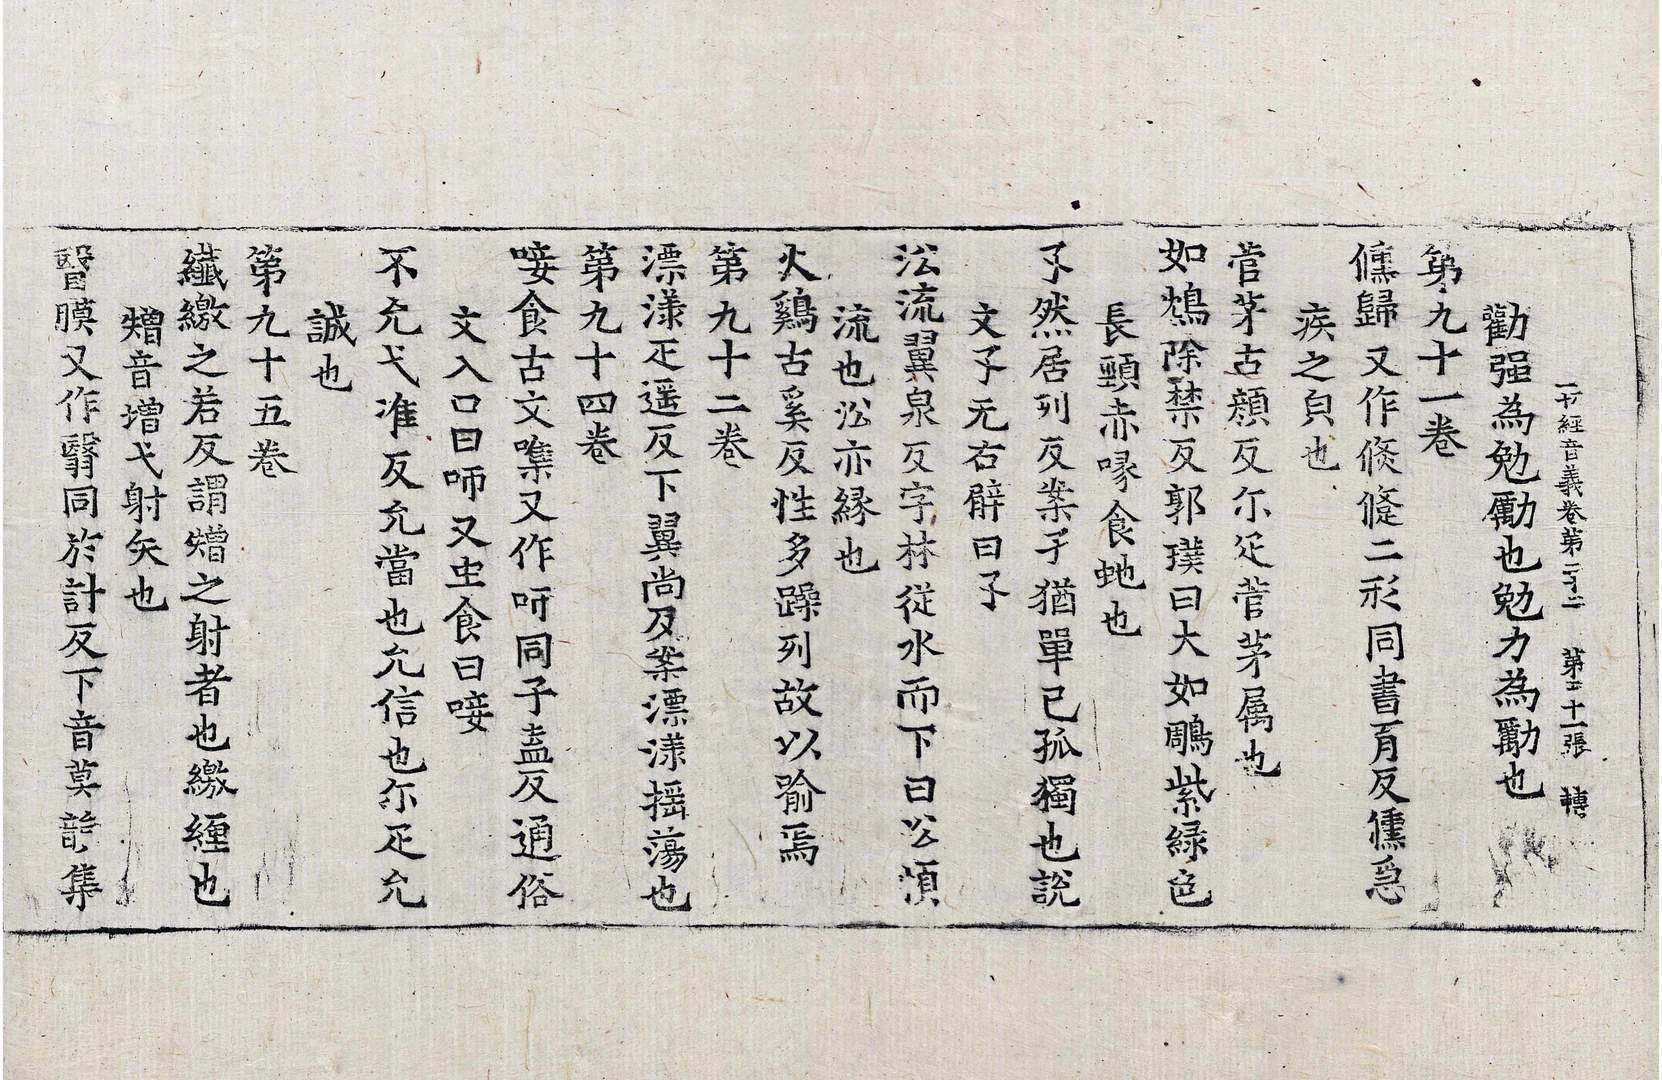 一切經音義卷第二十二 第二十一張 轉
勸强為勉勵也勉力為勸也
第九十一卷
儵歸又作倐儵二形同書育反儵忽急
疾之皃也
菅茅古顏反尒疋菅茅属也
如鴆除禁反郭璞曰大如鵰紫緑色
長頸赤喙食虵也
孑然居列反案孑猶單己孤獨也說
文孑无右臂曰孑
沿流翼泉反字林從水而下曰沿順
流也沿亦緣也
火鷄古奚反性多躁列故以喻焉
第九十二卷
漂漾疋遥反下翼尚反案漂漾揺蕩也
第九十四卷
唼食古文噆又作呞同子盍反通俗
文入口曰咂又虫食曰唼
不允弋准反允當也允信也尒疋允
誠也
第九十五卷
纎繳之若反謂矰之射者也繳纏也
矰音増弋射矢也
瞖膜又作瞖同於計反下音莫 集